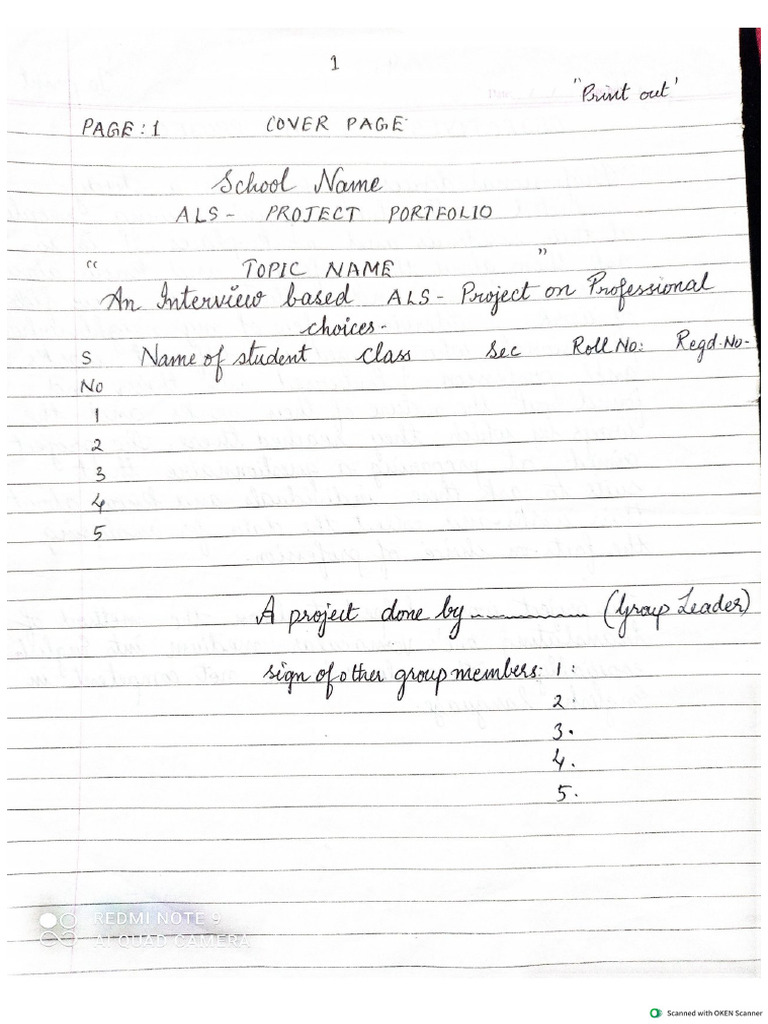 1
"Print out'
PAGE: 1 COVER PAGE
School Name
ALS - PROJECT PORTFOLIO
" TOPIC NAME "
An Interview based ALS - Project on Professional
choices.
S Name of student class Sec Roll No: Regd. No-
No
1
2
3
4
5
A project done by ............ (Group Leader)
sign of other group members: 1 :
2.
3.
4.
5.
REDMI NOTE 9
AI QUAD CAMERA
Scanned with OKEN Scanner